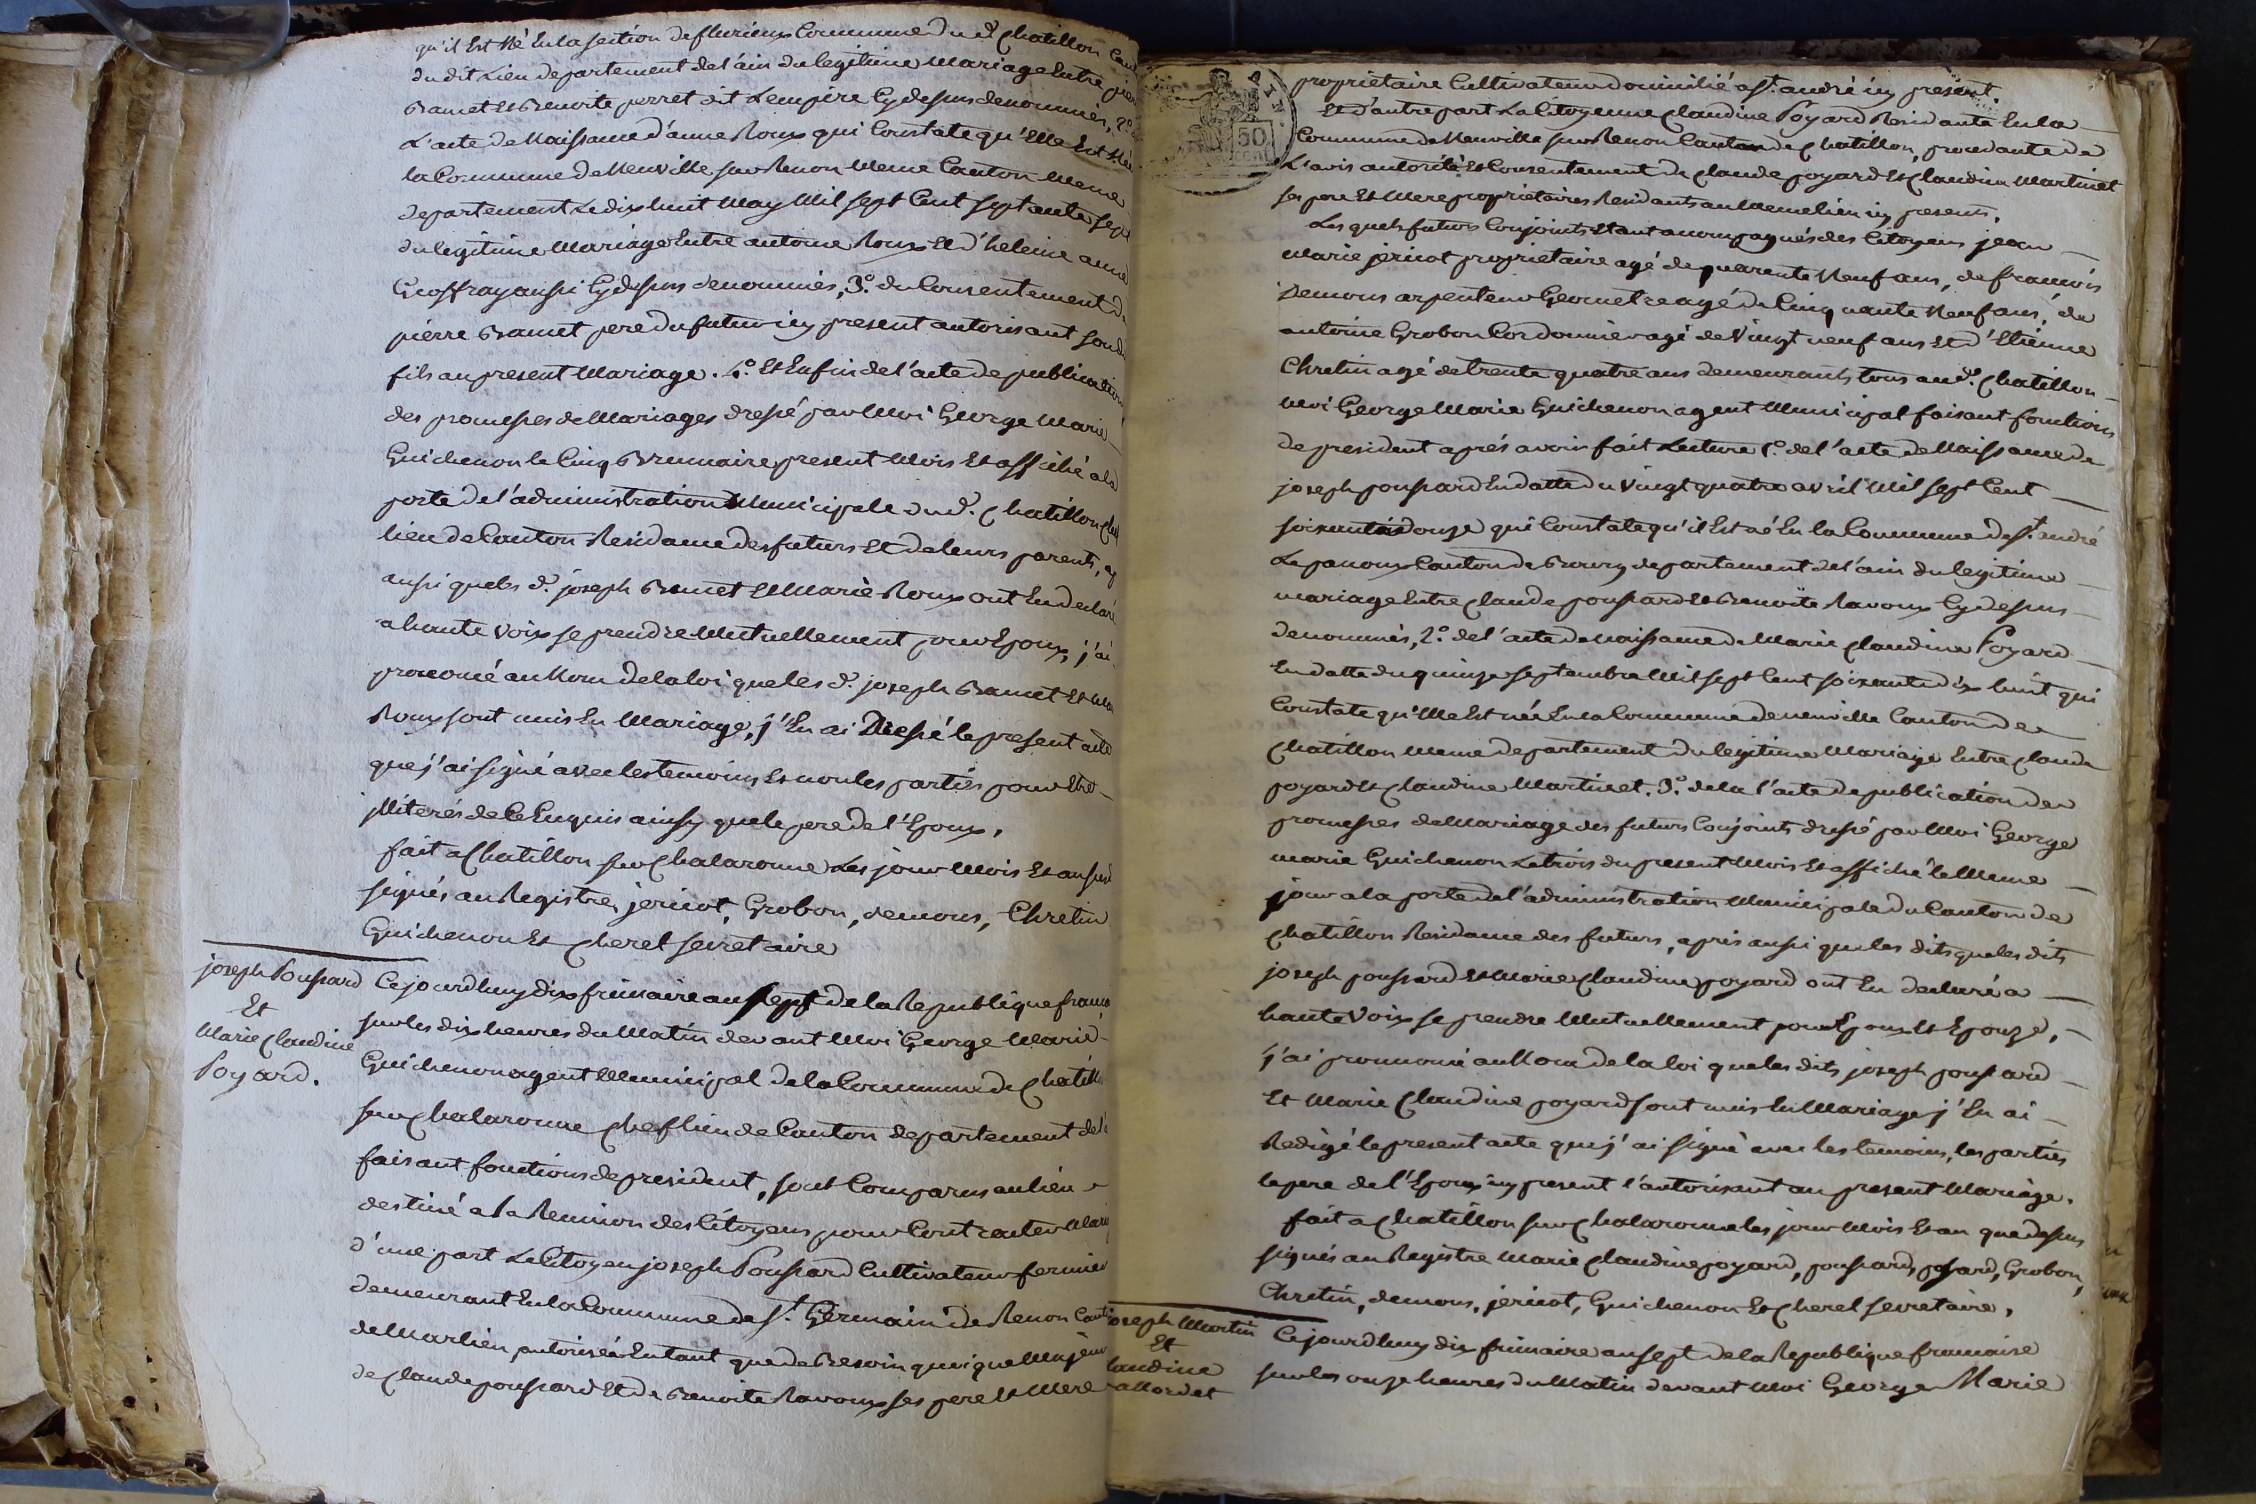 qu'il Est Né En la section de fleurieux Commune du d. Chatillon
du dit Lieu departement de l'ain du legitime Mariage Entre
Bramet Et Benoite perret dit Lempire Cy dessus denommés, 2.o
L'acte de Naissance d'anne Roux qui Constate qu'Elle Est Née
la Commune de Neuville sur Renon Meme Canton Meme
departement Le dix huit May Mil sept Cent septante sept
du legitime Mariage Entre antoine Roux Et d'heleine anne
Geoffray aussi Cy dessus denommés, 3.o du Consentement de
pierre Bramet pere du futur icy present autorisant son d.
fils au present Mariage. 4.o Et Enfin de l'acte de publication
des promesses de Mariages dressé par Moi George Marie
Guichenon le Cinq Brumaire present Mois Et affiché a la
porte de l'administration Municipale du d. Chatillon Chef
lieu de Canton Residance des futurs Et de leurs parents,
aussi que les d. joseph Bramet Et Marie Roux ont En declaré
a haute voix se prendre Mutuellement pour Epoux, j'ai
prononcé au Nom de la loi que les d. joseph Bramet Et
Roux sont unis En Mariage, j'En ai Dressé le present acte
que j'ai signé avec les temoins Et non les parties pour Etre
illiterés de Ce Enquis ainsy que le pere de l'Epoux,
fait a Chatillon sur Chalaronne Les jour Mois Et an susd
signés au Registre, jericot, Grobon, demous, Chretin
Guichenon Et Cheret secretaire
joseph Poussard
Et
Marie Claudine
Poyard.
Ce jourd'huy dix frimaire an sept de la Republique
sur les dix heures du Matin devant Moi George Marie
Guichenon agent Municipal de la Commune de Chatillon
sur Chalaronne Chef lieu de Canton departement de l'
faisant fonctions de president, sont Comparus au lieu
destiné a la Reunion des Citoyens pour Contracter
d'une part Le Citoyen joseph Poussard Cultivateur fermier
demeurant En la Commune de St. Germain de Renon
de Marlieu, autorisé En tant que de Besoin quoique Majeur
de Claude poussard Et de Benoite Ravoux ses pere Et Mere
50
cent
propriétaire Cultivateur domicilié a St. andré icy present.
Et d'autre part La Citoyenne Claudine Poyard Residante En la
Commune de Neuville sur Renon Canton de Chatillon, procedante de
L'avis autorité Et Consentement de Claude poyard Et Claudine Martinet
ses pere Et Mere propriétaires Residants au Meme lieu icy presents.
Les quels futurs Conjoints Etant accompagnés des Citoyens jean
Marie jericot propriétaire agé de quarente Neuf ans, de francois
Demous arpenteur Geometre agé de Cinquante Neuf ans, de
antoine Grobon Cordonnier agé de Vingt neuf ans Et d'Etienne
Chretin agé de trente quatre ans demeurants tous au d. Chatillon
Moi George Marie Guichenon agent Municipal faisant fonctions
de president aprés avoir fait Lecture 1.o de l'acte de Naissance de
joseph poussard En datte du Vingt quatre avril Mil sept Cent
soixante douze qui Constate qu'il Est né En la Commune de St. andré
Le panoux Canton de Bourg departement de l'ain du legitime
mariage Entre Claude poussard Et Benoite Ravoux Cy dessus
denommés, 2.o de l'acte de Naissance de Marie Claudine Poyard
En datte du quinze septembre Mil sept Cent soixante dix huit qui
Constate qu'Elle Est née En la Commune de neuville Canton de
Chatillon Meme departement du legitime Mariage Entre Claude
poyard Et Claudine Martinet. 3.o de la l'acte de publication des
promesses de Mariage des futurs Conjoints dressé par Moi George
marie Guichenon Le trois du present Mois Et affiché le Meme
jour a la porte de l'administration Municipale du Canton de
Chatillon Residance des futurs, après aussi que les dits que les dits
joseph poussard Et Marie Claudine poyard ont En declaré a
haute Voix se prendre Mutuellement pour Epoux Et Epouze,
j'ai prononcé au Nom de la loi que les dits joseph poussard
Et Marie Claudine poyard sont unis En Mariage j'En ai
Redigé le present acte que j'ai signé avec les temoins, les parties
le pere de l'Epoux icy present l'autorisant au present Mariage.
fait a Chatillon sur Chalaronne les jour Mois Et an que dessus
signés au Registre Marie Claudine poyard, poussard, poyard, Grobon,
Chretin, demous, jericot, Guichenon Et Cheret secretaire,
joseph Martin
Et
laudine
allordet
Ce jourd'huy dix frimaire an sept de la Republique francaise
sur les onze heures du Matin devant Moi George Marie